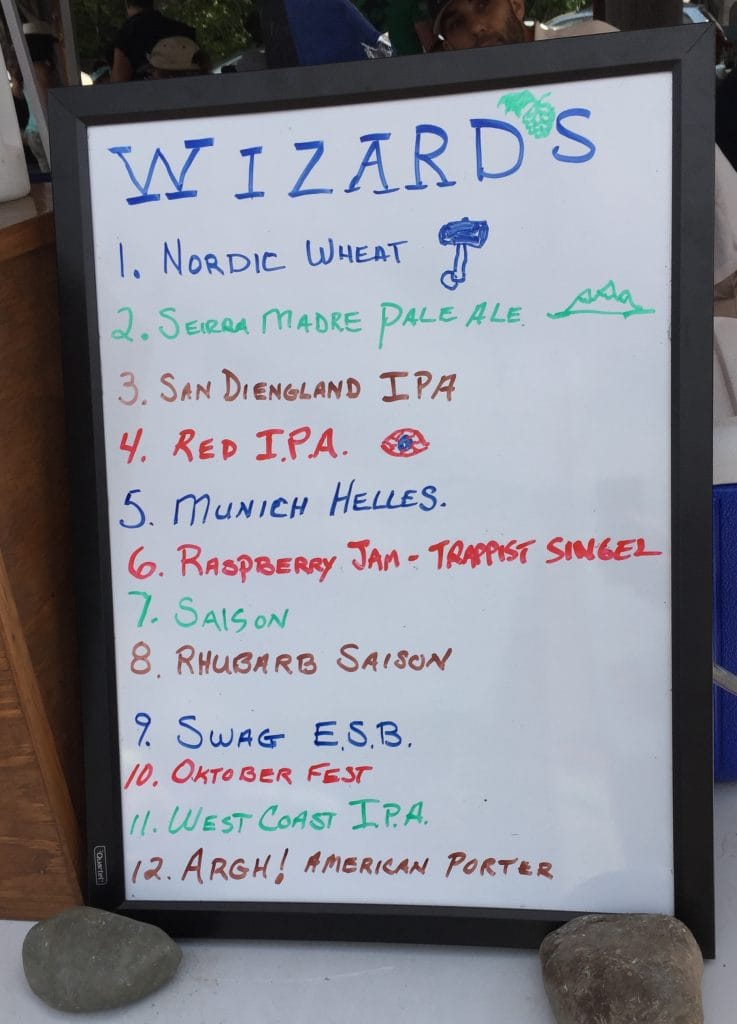 WIZARD'S
1. NORDIC WHEAT
2. SEIRRA MADRE PALE ALE.
3. SAN DIENGLAND IPA
4. RED I.P.A.
5. MUNICH HELLES.
6. RASPBERRY JAM - TRAPPIST SINGEL
7. SAISON
8. RHUBARB SAISON
9. SWAG E.S.B.
10. OKTOBER FEST
11. WEST COAST I.P.A.
12. ARGH! AMERICAN PORTER
Quartet